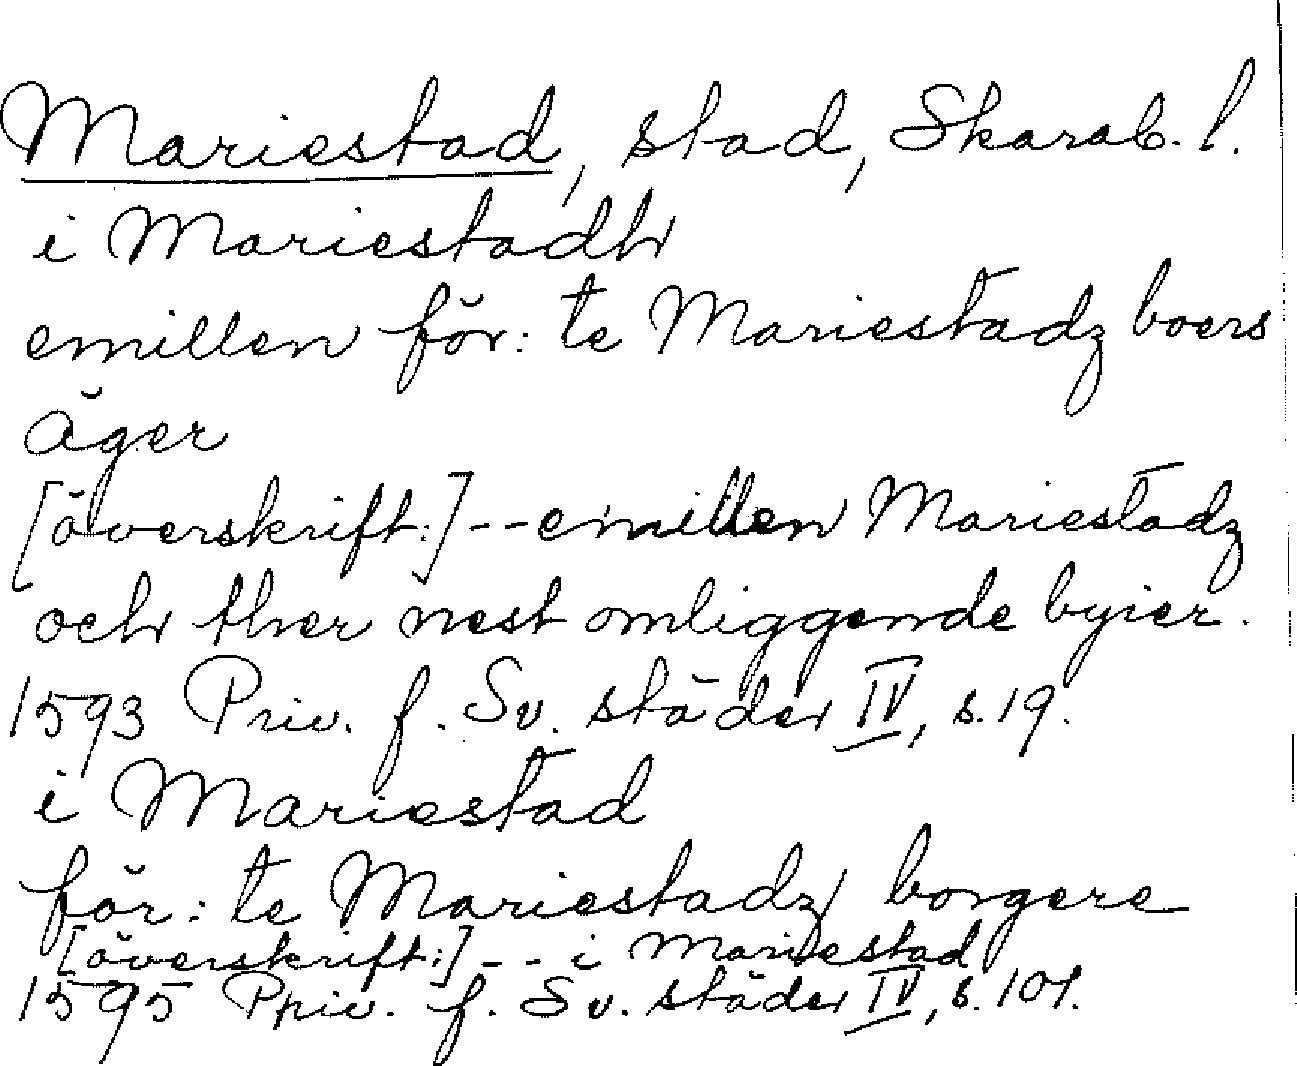 Mariestad, stad, Skarab. l.
i Mariestadh
emillen för:te Mariestadz boers
äger
[överskrift:] -- emillen Mariestadz
och ther nest omliggende byier.
1593 Priv. f. Sv. städer IV, s. 19.
i Mariestad
för:te Mariestadz borgere
[överskrift:] -- i Mariestad
1595 Priv. f. Sv. städer IV, s. 101.